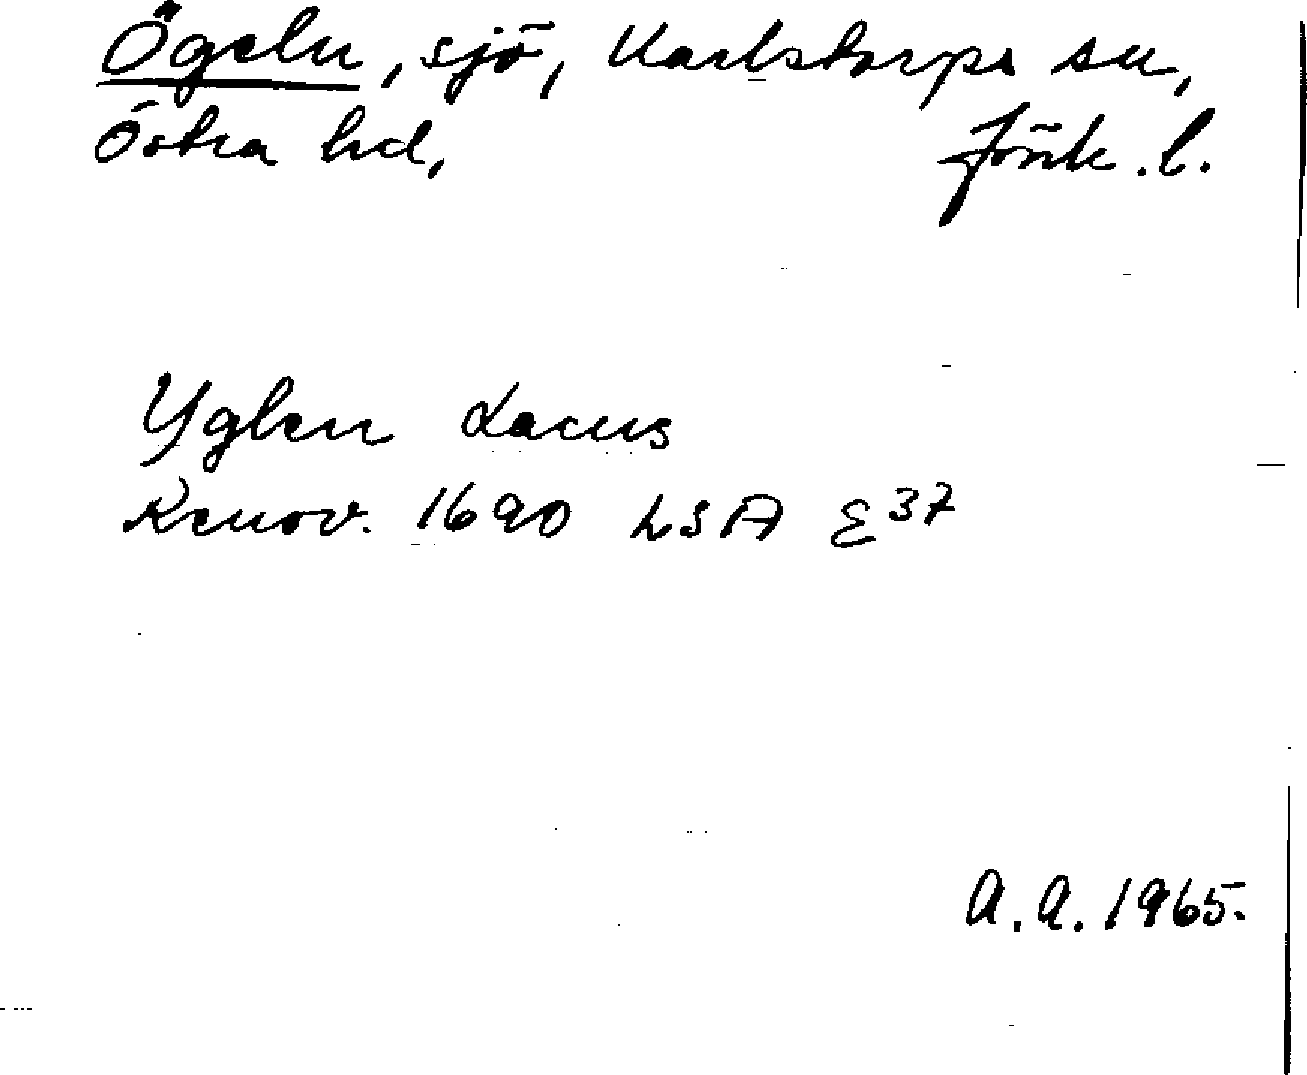 Ögeln, sjö, Karlstorps sn,
Östra hd, Jönk. l.
Yglen Lacus
Renov. 1690 LSA E37
A. A. 1965.